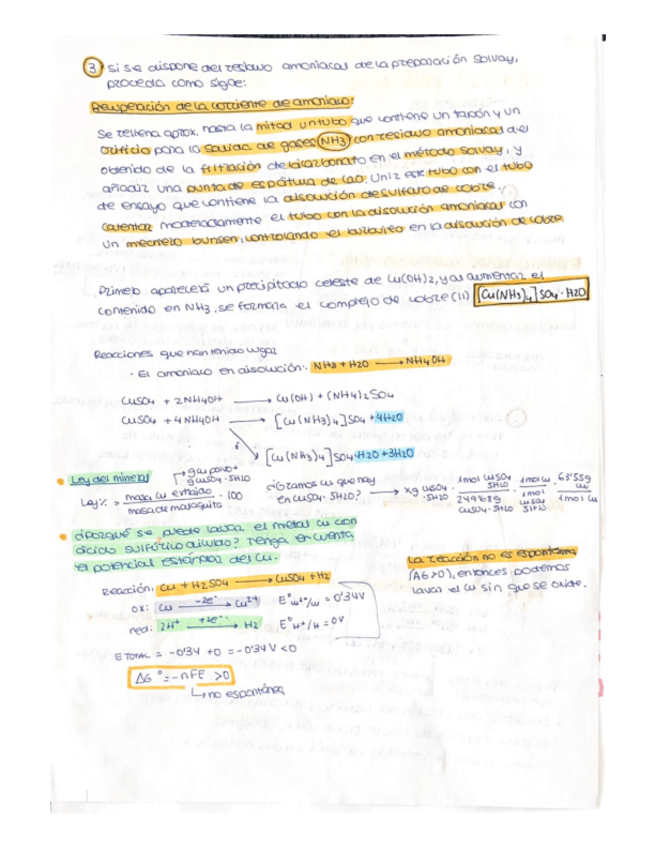 3 Si se dispone del residuo amoniacal de la preparación Solvay,
proceda como sigue:
Recuperación de la corriente de amoniaco:
Se rellena aprox. hasta la mitad un tubo que contiene un tapón y un
orificio para la salida de gases (NH3) con residuo amoniacal del
obtenido de la filtración de bicarbonato en el método Solvay, y
añadir una punta de espátula de CaO. Uniz este tubo con el tubo
de ensayo que contiene la disolución de sulfato de cobre.
Calentar moderadamente el tubo con la disolución amoniacal con
un mechero bunsen, controlando el burbujeo en la disolución de cobre.
Primero aparecerá un precipitado celeste de Cu(OH)2, y al aumentar el
contenido en NH3, se formará el complejo de cobre (II) [Cu(NH3)4]SO4·H2O
Reacciones que han tenido lugar
· El amoniaco en disolución: NH3 + H2O → NH4OH
CuSO4 + 2NH4OH → Cu(OH) + (NH4)2SO4
CuSO4 + 4NH4OH → [Cu(NH3)4]SO4 + 4H2O
[Cu(NH3)4]SO4·H2O + 3H2O
Ley del mineral
g CuSO4·5H2O
Ley% = masa Cu extraido / masa de malaquita · 100
¿Gramos Cu que hay en CuSO4·5H2O? → xg CuSO4·5H2O · 1mol CuSO4·5H2O / 249'689 CuSO4·5H2O · 1mol Cu / 1mol CuSO4·5H2O · 63'55g Cu / 1mol Cu
¿Porqué se puede lavar el metal Cu con
ácido sulfúrico diluido? Tenga en cuenta
el potencial estándar del Cu.
Reacción: Cu + H2SO4 → CuSO4 + H2
ox: Cu -2e- → Cu2+ E°Cu2+/Cu = 0'34V
red: 2H+ +2e- → H2 E°H+/H = 0V
E TOTAL = -0'34 + 0 = -0'34 V < 0
ΔG° = -nFE > 0
↳ no espontánea
La reacción no es espontánea
(ΔG>0), entonces podemos
lavar el Cu sin que se oxide.